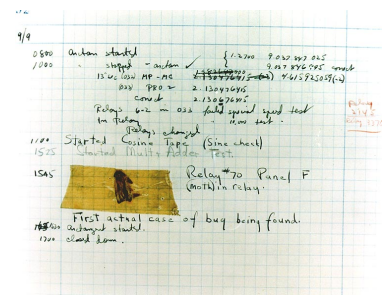 9/9
0800 antan started
1000 " stopped - antan ✓ { 1.2700 9.037 847 025
9.037 846 995 correct
13"uc (032) MP - MC 4.615925059(-2)
033 PRO 2 2.130476415
correct 2.130676415
Relays 6-2 in 033 failed special speed test
in relay " 11.000 test.
Relays changed
1100 Started Cosine Tape (Sine check)
1525 Started Mult+ Adder Test.
1545 Relay #70 Panel F
(Moth) in relay.
First actual case of bug being found.
antangent started.
1700 closed down.